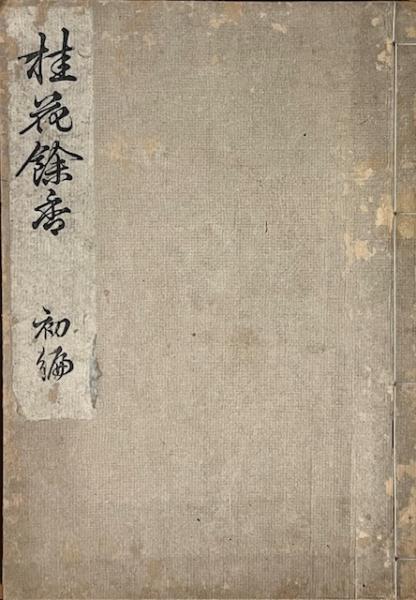 桂花餘香 初編